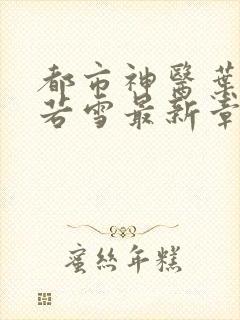 都市神醫葉
若雪最新章
蜜丝年糕